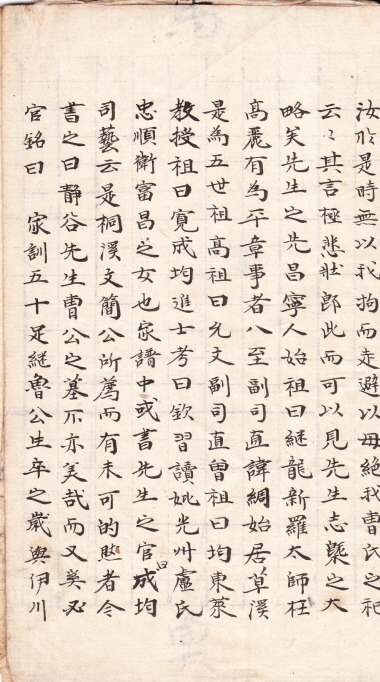 汝於是時無以我拘而走避以毋絶我曺氏之祀
云〻其言極悲壯卽此而可以見先生志槩之大
略矣先生之先昌寧人始祖曰継龍新羅太師在
高麗有為平章事者八至副司直諱綢始居草溪
是為五世祖高祖曰允文副司直曽祖曰均東萊
教授祖曰寛成均進士考曰欽習讀妣光州盧氏
忠順衛富昌之女也家譜中或書先生之官曰成均
司藝云是桐溪文簡公所薦而有未可的照者今
書之曰靜谷先生曺公之墓不亦美哉而又奚必
官銘曰 家訓五十足継魯公生卒之歲與伊川